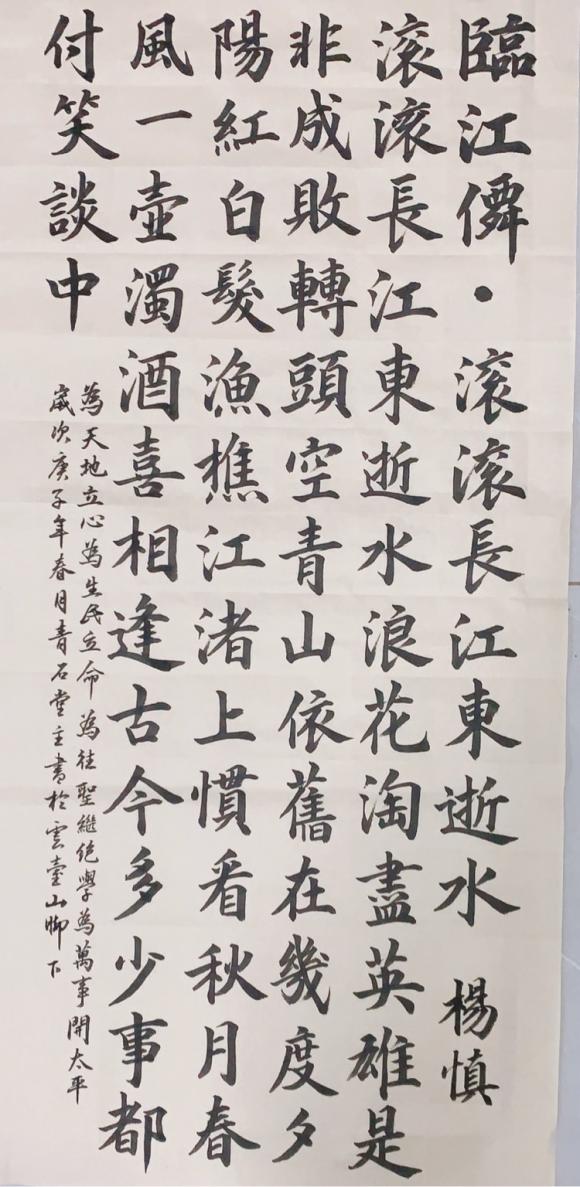 臨江僊·滚滚長江東逝水 楊慎
滚滚長江東逝水浪花淘盡英雄是
非成敗轉頭空青山依舊在幾度夕
陽紅白髮漁樵江渚上慣看秋月春
風一壺濁酒喜相逢古今多少事都
付笑談中
為天地立心為生民立命為往聖繼絕學為萬事開太平
歲次庚子年春月青石堂主書於雲臺山腳下